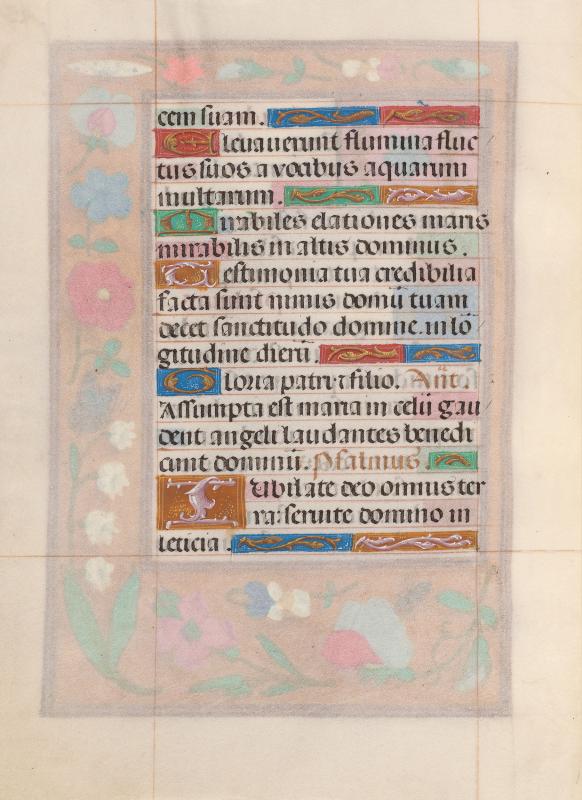 cem suam.
Eleuauerunt flumina fluc
tus suos a vocibus aquarum
multarum.
Mirabiles elationes maris
mirabilis in altis dominus.
Testimonia tua credibilia
facta sunt nimis domū tuam
decet sanctitudo domine. in lō
gitudine dierū.
Gloria patri ⁊ filio. Añt.
Assumpta est maria in celū gau
dent angeli laudantes benedi
cunt dominū. Psalmus.
Iubilate deo omnis ter
ra: seruite domino in
leticia.